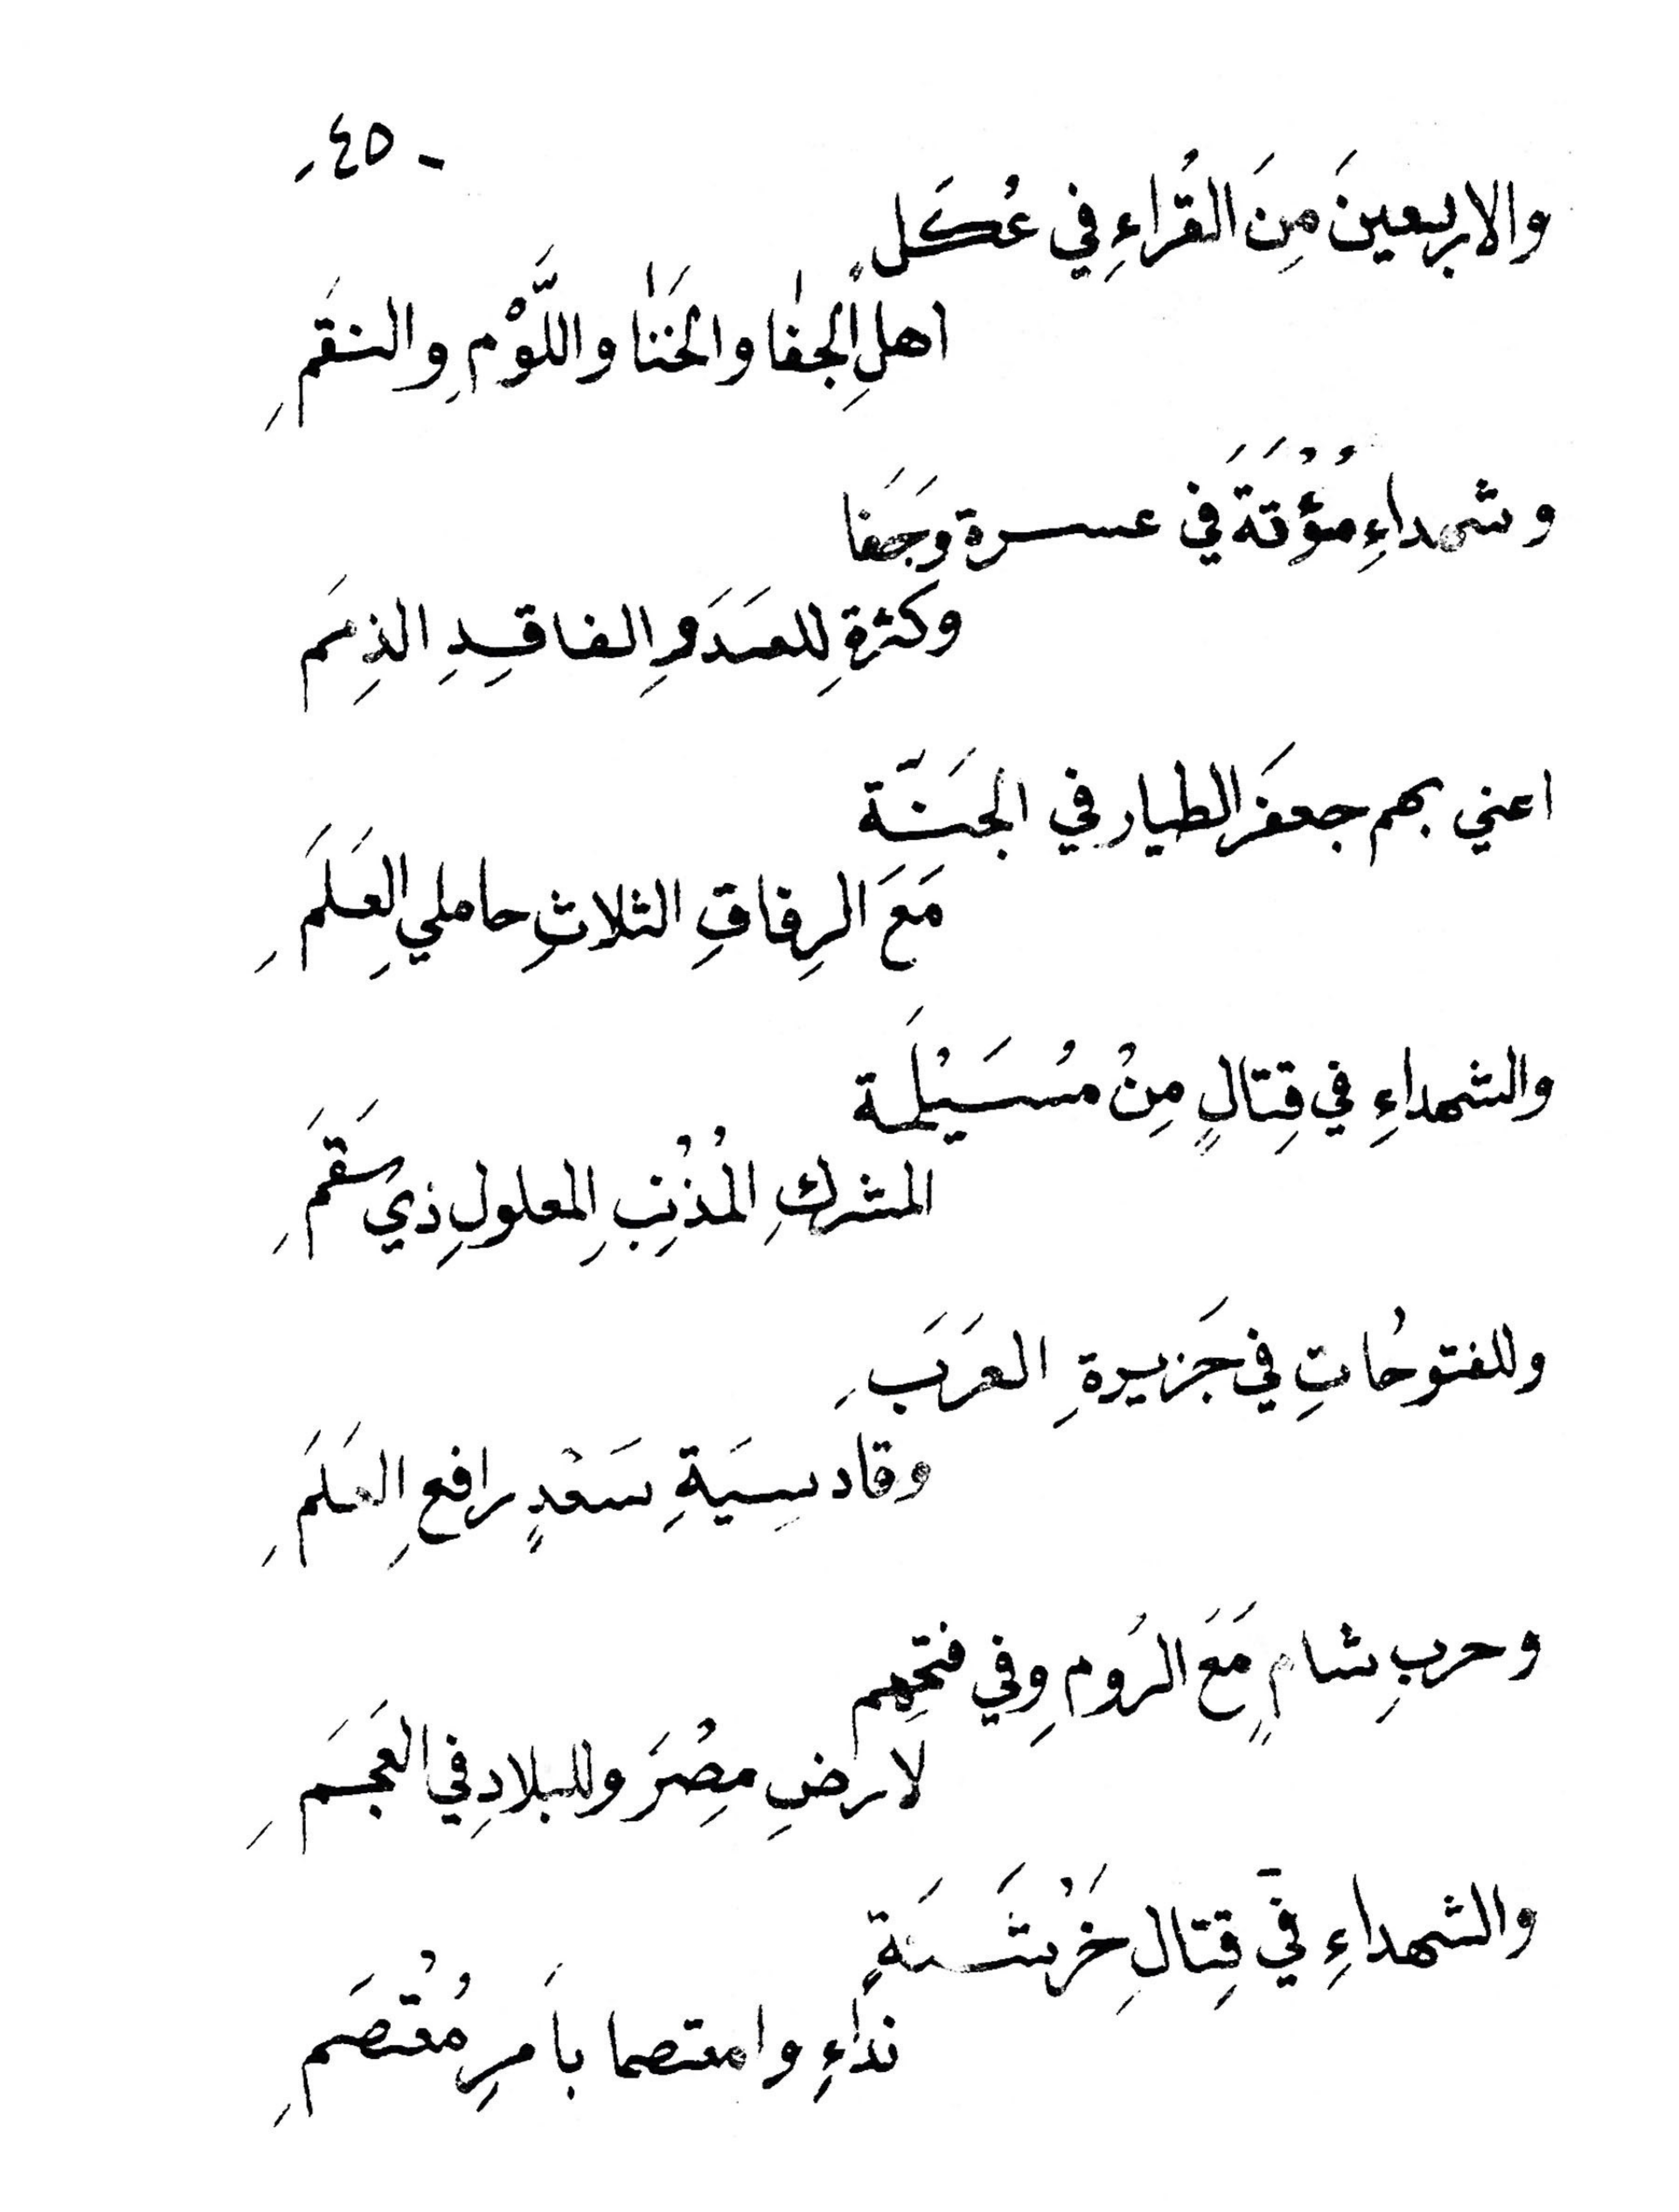 - ٤٥ -
والاربعينَ مِنَ القُراءِ في عُكَلٍ
اهلِ الجفٰا والخَنٰا واللَّوْمِ والنقَمِ
وشهداءِ مُؤْتَةَ في عسرة وجَفَا
وكثرةِ للعدَوِ الفاقِدِ الذِمَم
اعني بهم جعفَر الطيار في الجَنَّة
مَعَ الرِفاقِ الثلاثِ حاملي العَلَمِ
والشهداءِ في قِتالٍ مِنْ مُسَيْلَمة
المشركِ المُذْنِبِ المعلولِ ذي سَقَمِ
وللفتوحُاتِ في جَزيرةِ العَرَبِ
وقادسِيَةِ سَعْدٍ رافعِ العَلَمِ
وحربِ شامٍ مَعَ الرُومِ وفي فتحِهِم
لارضِ مِصْرَ وللبلادِ في العَجَمِ
والشهداءِ في قِتالِ خَرْشَنَةٍ
نداءِ وامعتصما باَمرِ مُعْتصَمِ